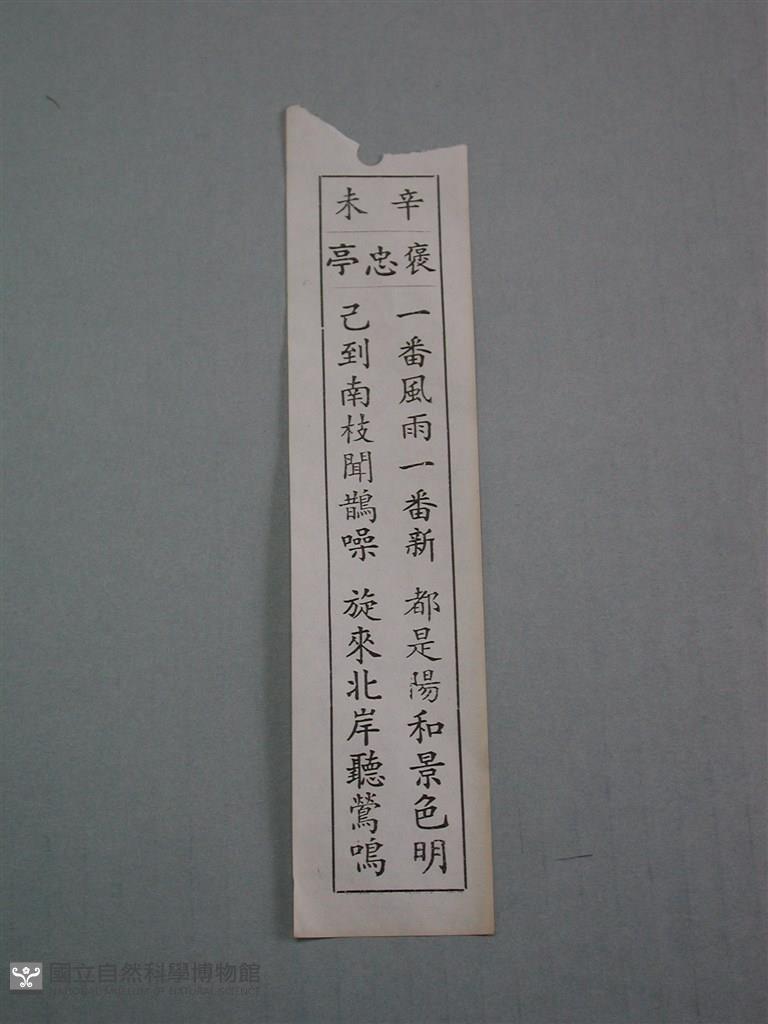 辛未
褒忠亭
一番風雨一番新 都是陽和景色明
己到南枝聞鵲噪 旋來北岸聽鶯鳴
國立自然科學博物館
NATIONAL MUSEUM OF NATURAL SCIENCE